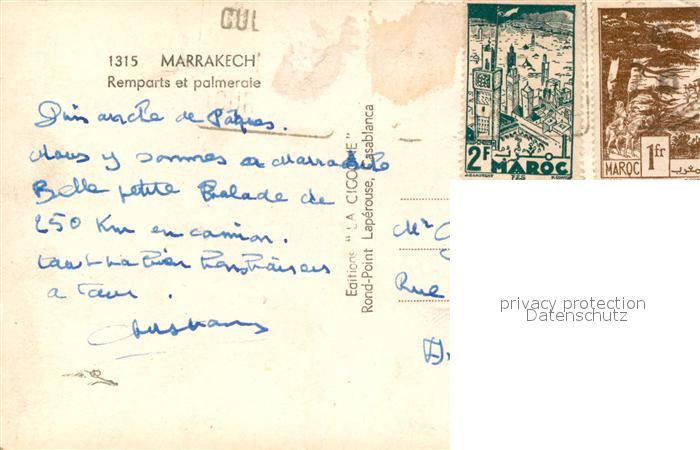 CUL
1315 MARRAKECH
Remparts et palmeraie
Dimanche de Pâques.
Nous y sommes a Marrakech
Belle petite Balade de
250 Km en camion.
a tous.
Editions "LA CIGOGNE"
Rond-Point Lapérouse, Casablanca
2F MAROC
MAROC 1fr
Mr
Rue
privacy protection
Datenschutz